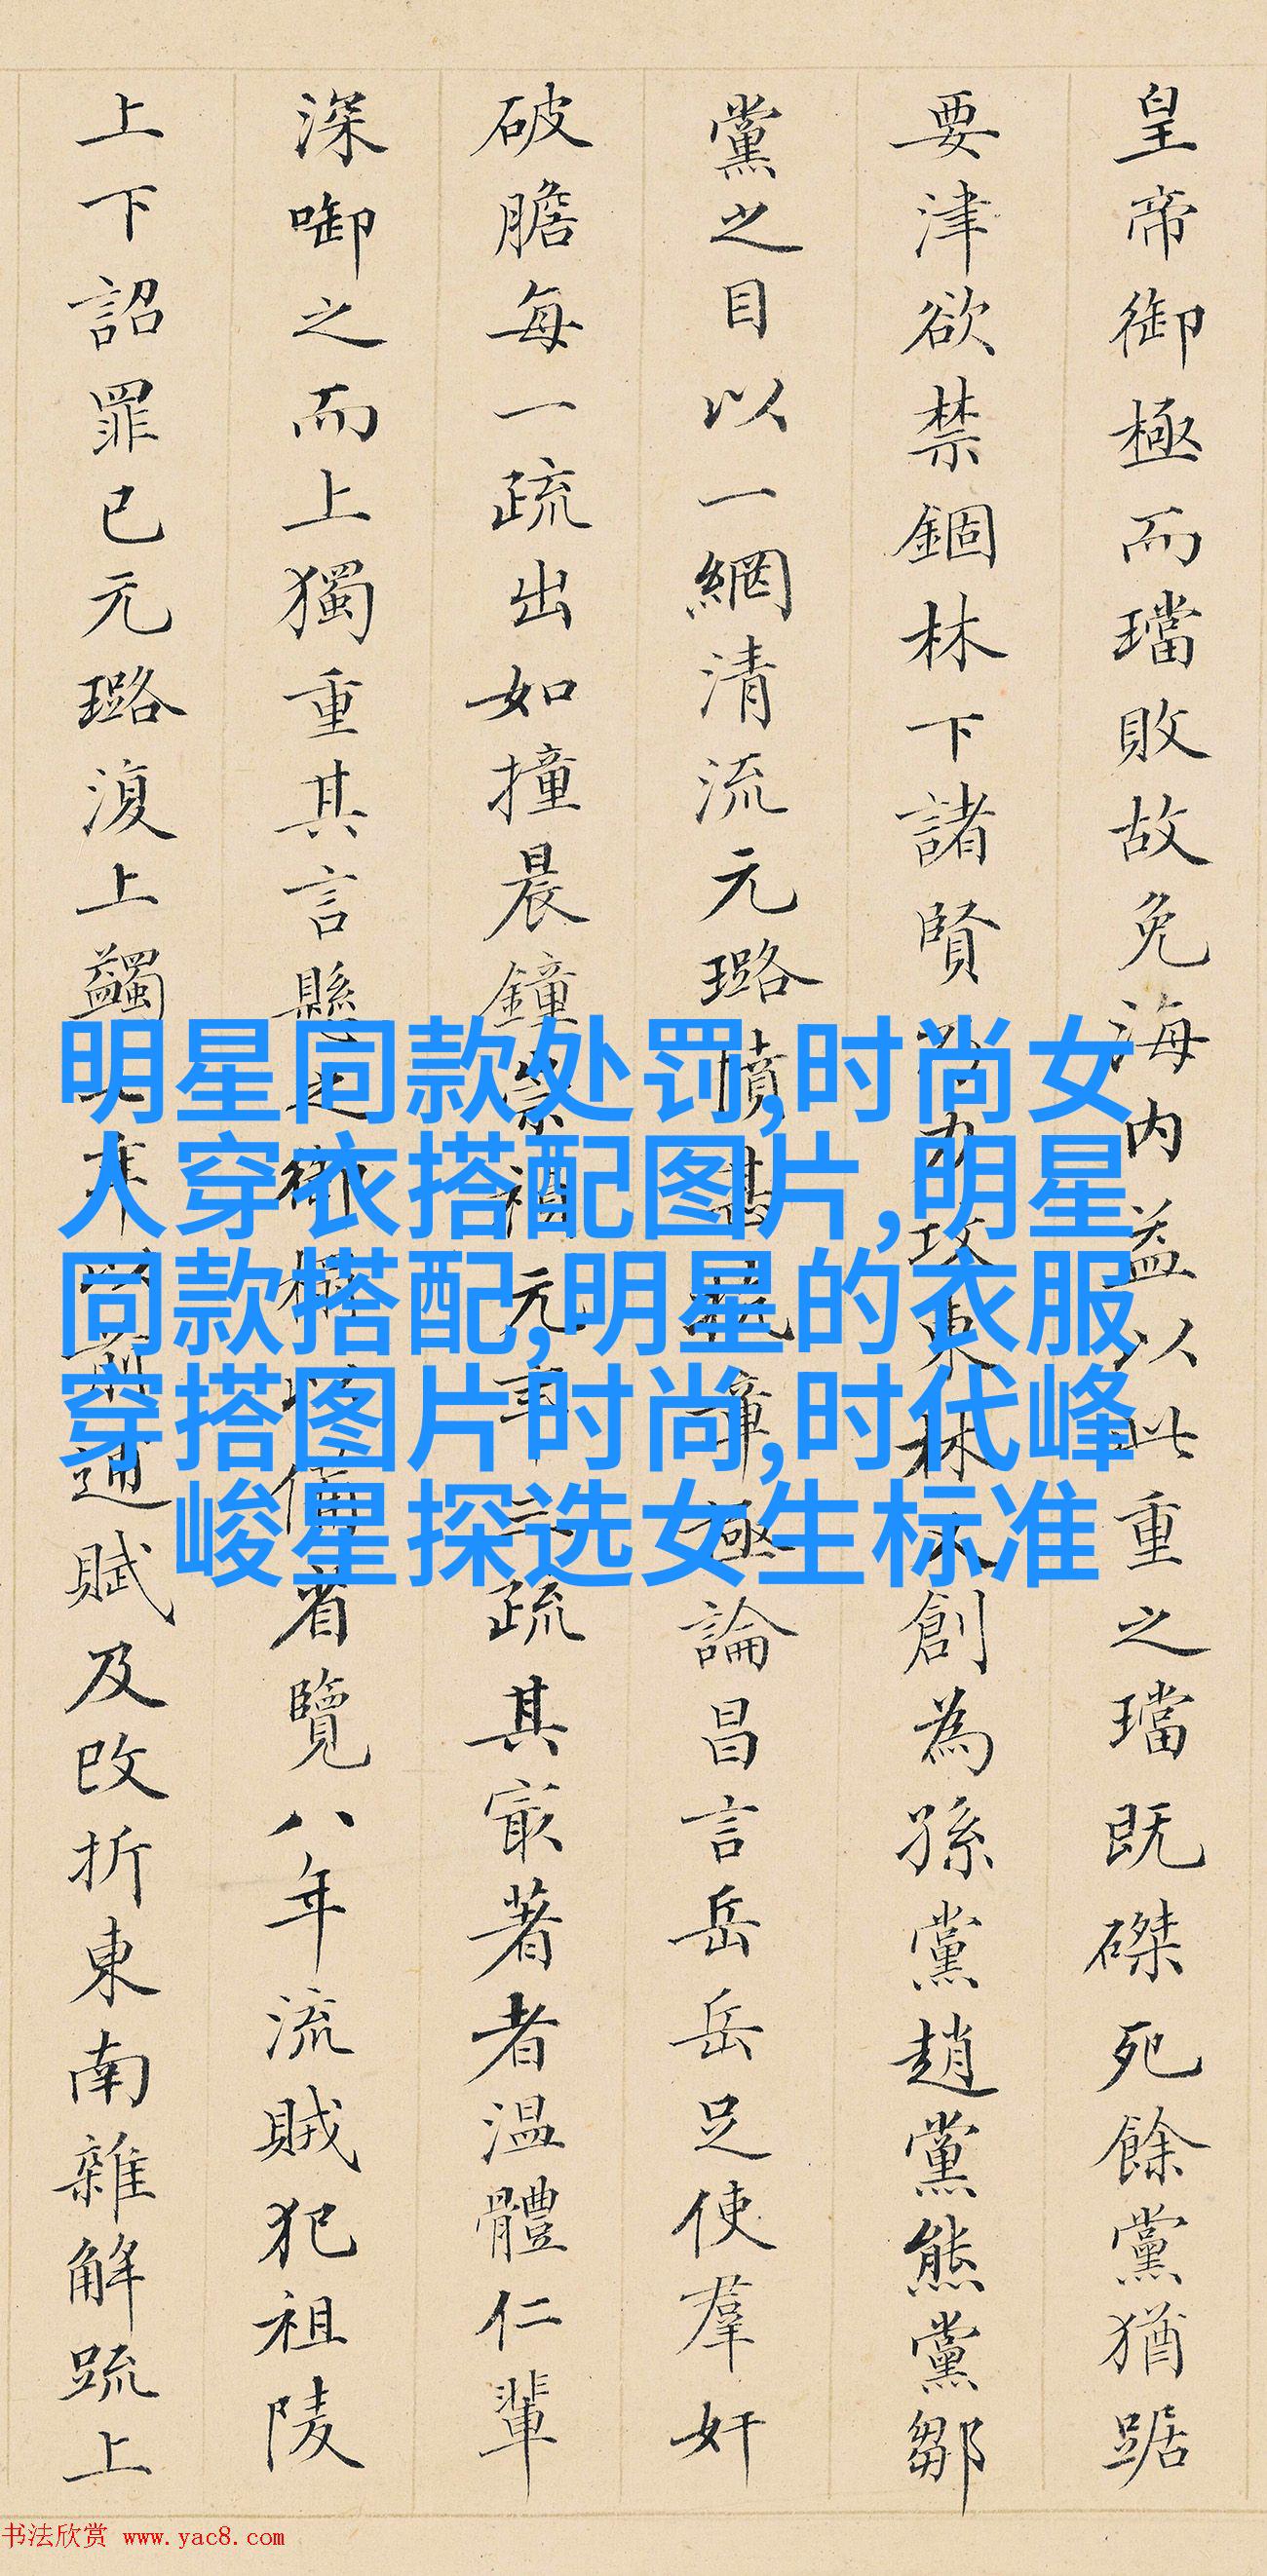 皇帝御極而璫敗故免海内益以此重之璫既磔死餘黨猶踞
要津欲禁錮林下諸賢力攻東林又創為孫黨趙黨熊黨鄒
黨之目以一網清流元璐憤甚抗章極論昌言岳岳足使羣奸
破膽每一疏出如撞晨鐘崇禎元年疏其㝡著者溫體仁輩
深啣之而上獨重其言懸之御榻以備省覽八年流賊犯祖陵
上下詔罪已元璐復上蠲七年以前逋賦及改折東南雜解疏上
明星同款处罚,时尚女
人穿衣搭配图片,明星
同款搭配,明星的衣服
穿搭图片时尚,时代峰
峻星探选女生标准
书法欣赏 www.yac8.com